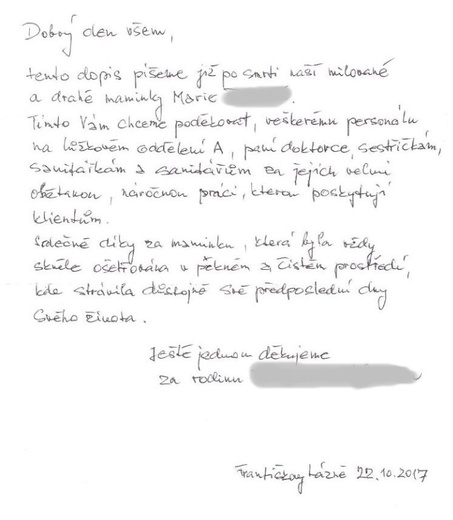 Dobrý den všem,
tento dopis píšeme již po smrti naší milované
a drahé maminky Marie
Tímto Vám chceme poděkovat, veškerému personálu
na lůžkovém oddělení A, paní doktorce, sestřičkám,
sanitářkám a sanitářům za jejich velmi
obětavou, náročnou práci, kterou poskytují
klientům.
Srdečné díky za maminku, která byla vždy
skvěle ošetřována v pěkném a čistém prostředí,
kde strávila důstojně své předposlední dny
svého života.
Ještě jednou děkujeme
za rodinu
Františkovy Lázně 22.10.2017